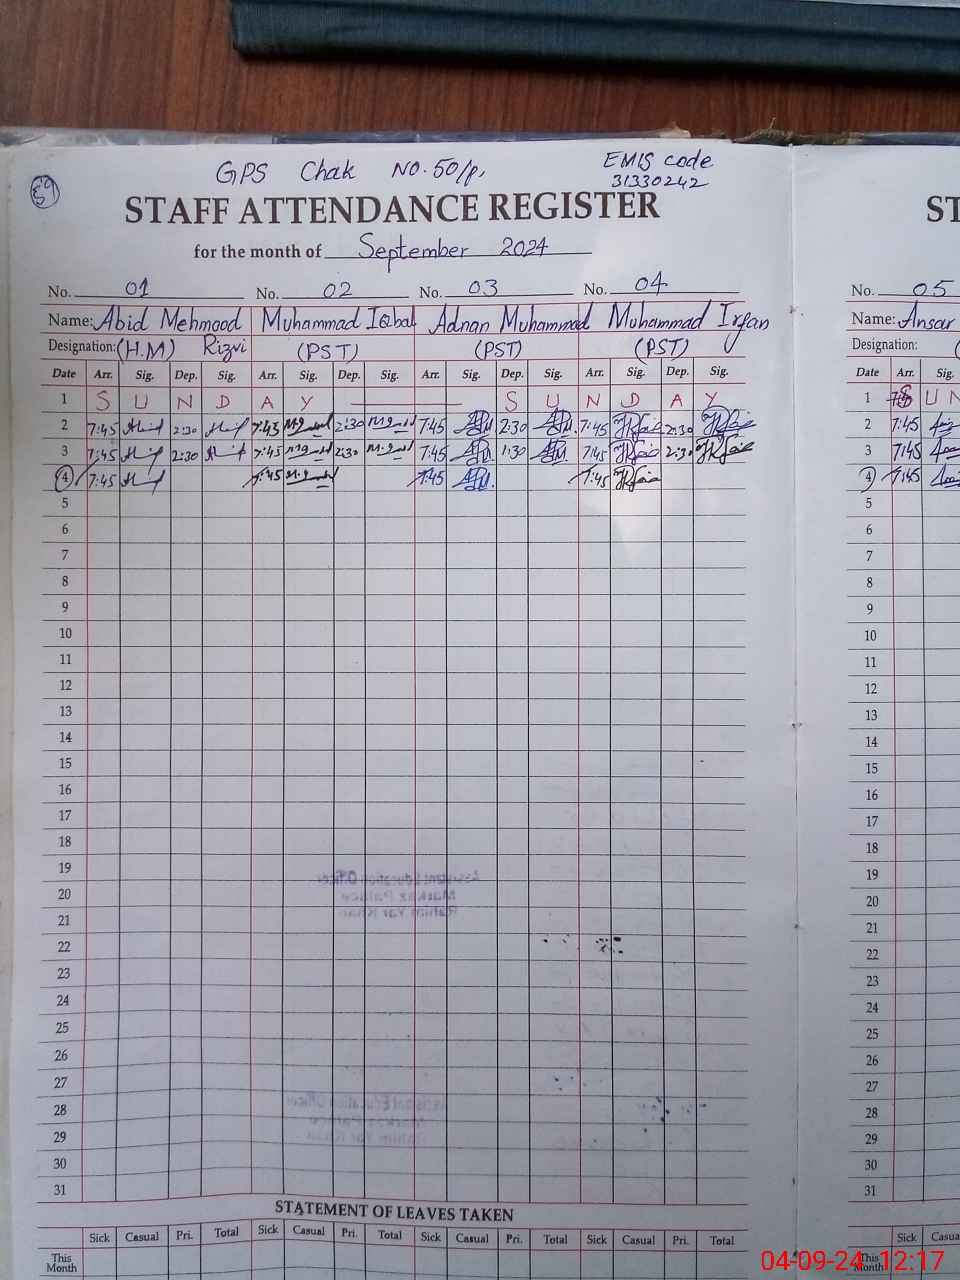 GPS Chak NO. 50/p,
EMIS code
31330242
59
STAFF ATTENDANCE REGISTER
for the month of September 2024
No. 01 No. 02 No. 03 No. 04
Name: Abid Mehmood Muhammad Iqbal Adnan Muhammad Muhammad Irfan
Designation: (H.M) Rizvi (PST) (PST) (PST)
Date Arr. Sig. Dep. Sig. Arr. Sig. Dep. Sig. Arr. Sig. Dep. Sig. Arr. Sig. Dep. Sig.
1 S U N D A Y S U N D A Y
2 7:45 2:30 7:45 2:30 7:45 2:30 7:45 2:30
3 7:45 2:30 7:45 2:30 7:45 1:30 7:45 2:30
4 7:45 7:45 7:45 7:45
5
6
7
8
9
10
11
12
13
14
15
16
17
18
19
20
21
22
23
24
25
26
27
28
29
30
31
Assistant Education Officer
Markaz Palace
Rahim Yar Khan
STATEMENT OF LEAVES TAKEN
Sick Casual Pri. Total Sick Casual Pri. Total Sick Casual Pri. Total Sick Casual Pri. Total
This
Month
ST
No. 05
Name: Ansar
Designation:
Date Arr. Sig.
1 S U N
2 7:45
3 7:45
4 7:45
5
6
7
8
9
10
11
12
13
14
15
16
17
18
19
20
21
22
23
24
25
26
27
28
29
30
31
Sick Casual
This
Month
04-09-24 12:17